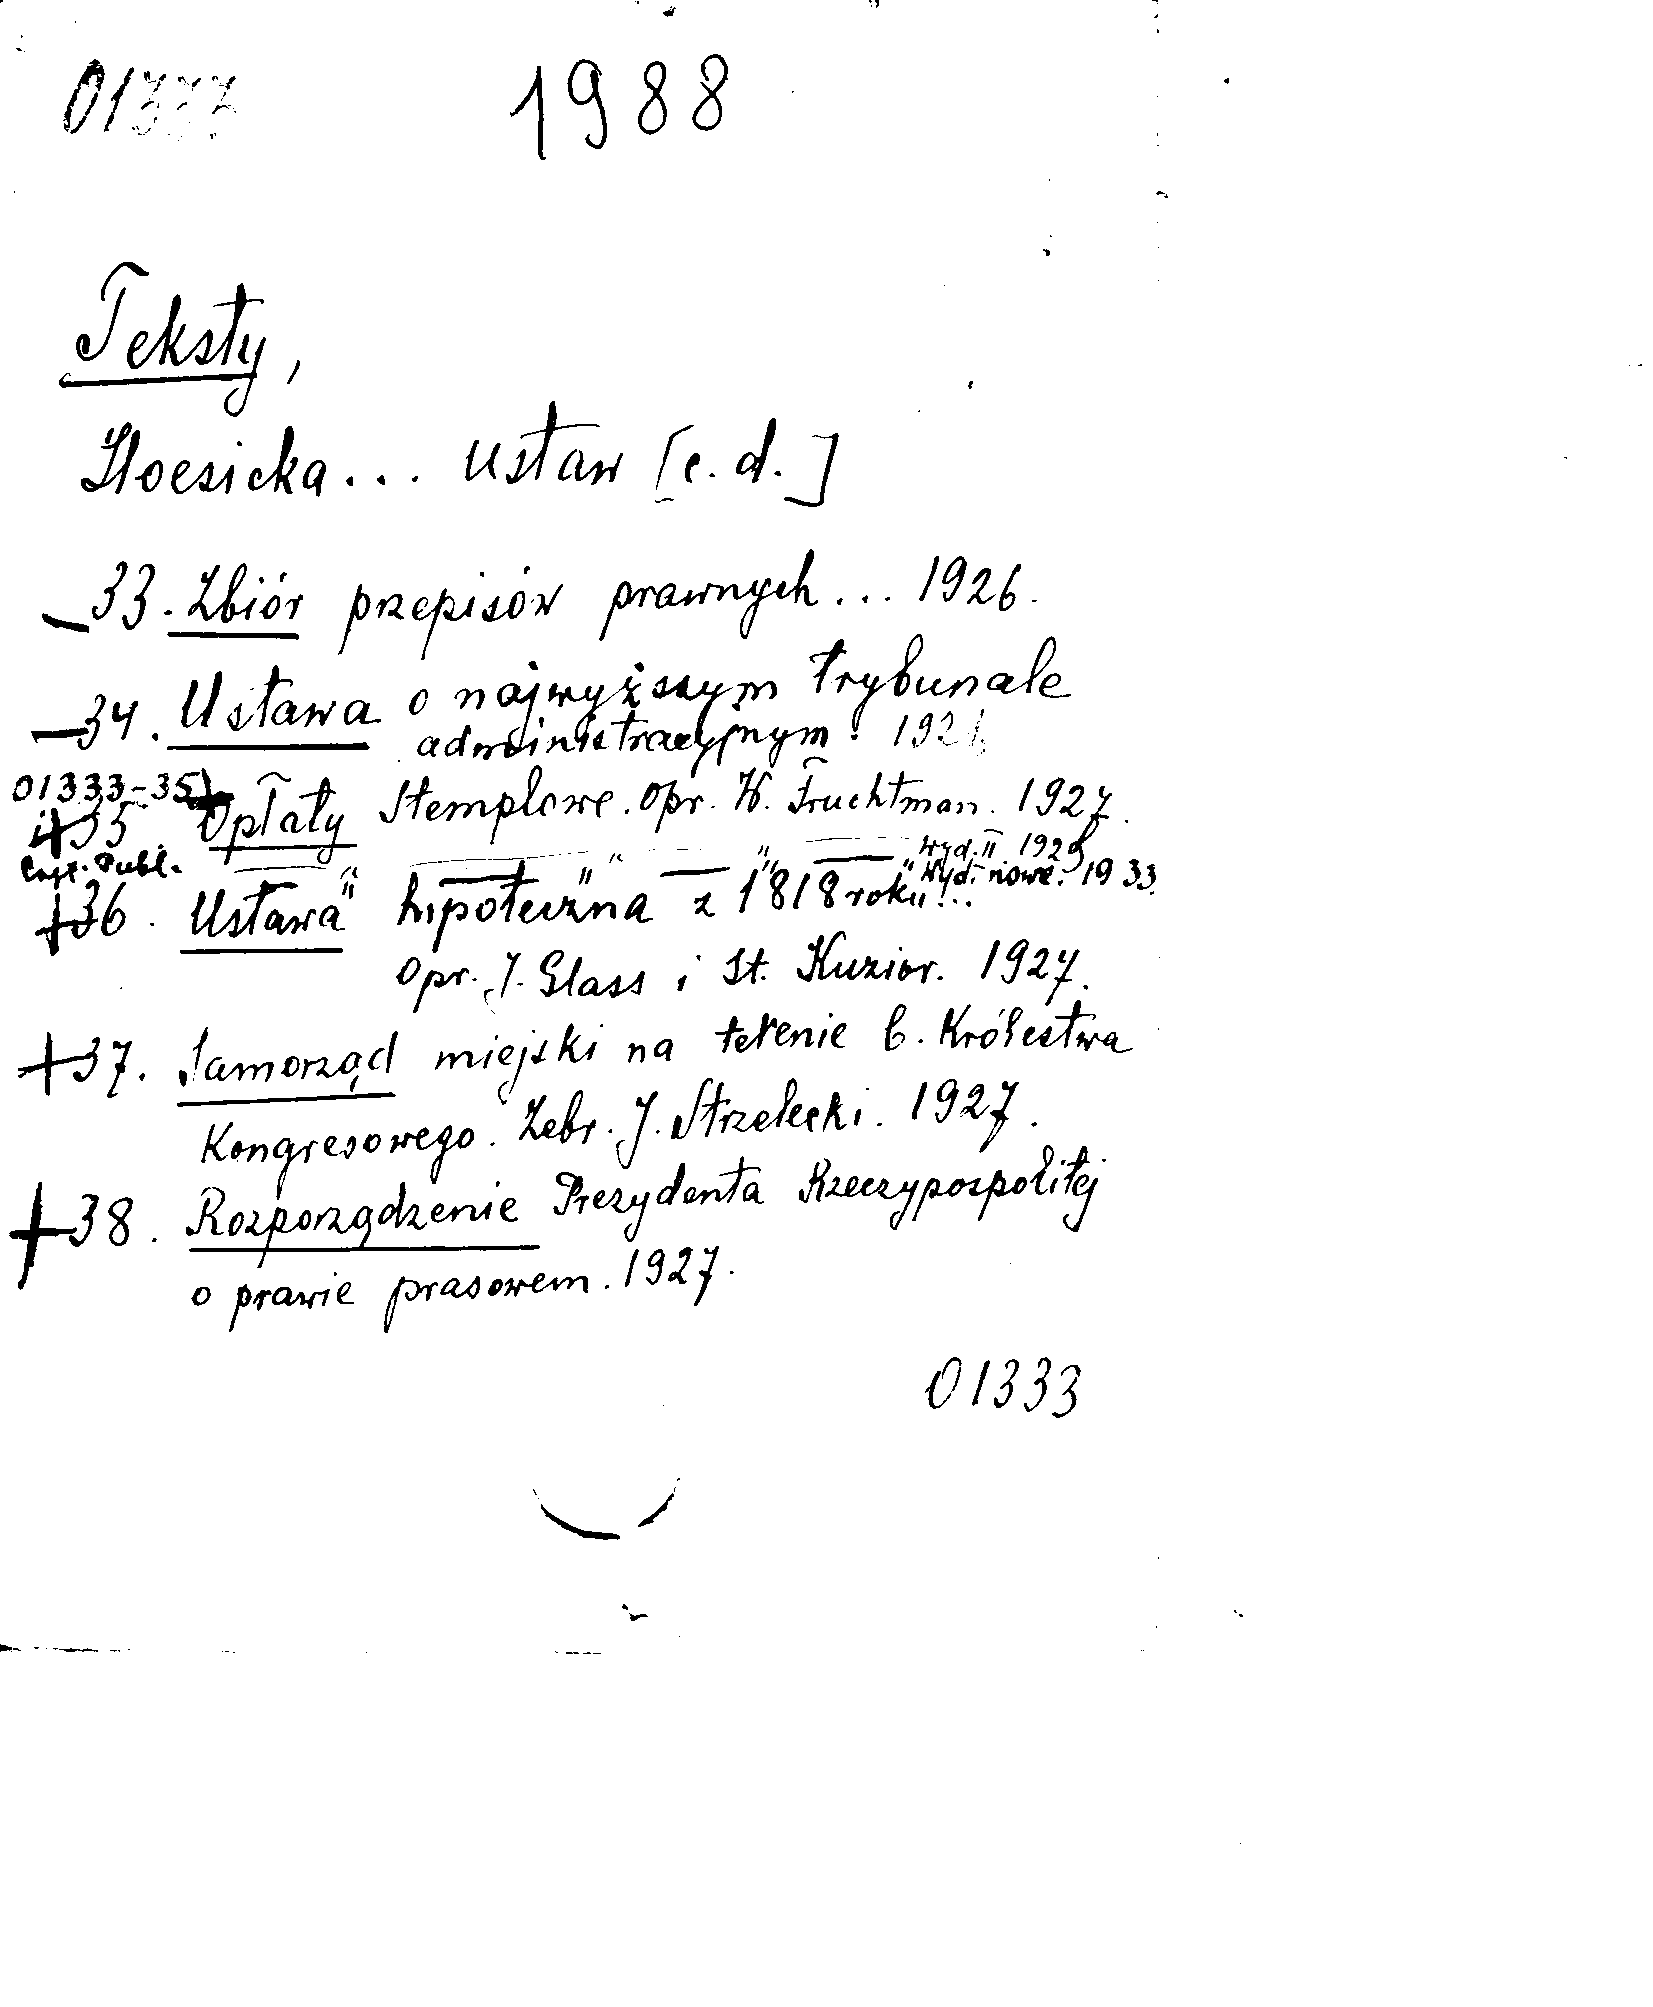 01333 1988
Teksty,
Hoesicka... Ustaw [c. d.]
33. Zbiór przepisów prawnych... 1926.
34. Ustawa o najwyższym trybunale
administracyjnym. 1926
01333-35)
i 35 Opłaty stemplowe. Opr. W. Fruchtman. 1927.
Czyt. Publ. — " — — " — — " — wyd. II 1929
— " — — " — — " — Wyd. nowe. 1933.
36. Ustawa hipoteczna z 1818 roku...
Opr. J. Glass i St. Kuzior. 1927.
37. Samorząd miejski na terenie b. Królestwa
Kongresowego. Zebr. J. Strzelecki. 1927.
38. Rozporządzenie Prezydenta Rzeczypospolitej
o prawie prasowem. 1927.
01333